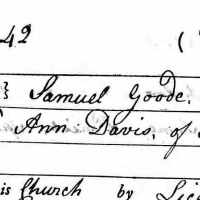 42 (
} Samuel Goode.
Ann Davis, of
is Church by Lice